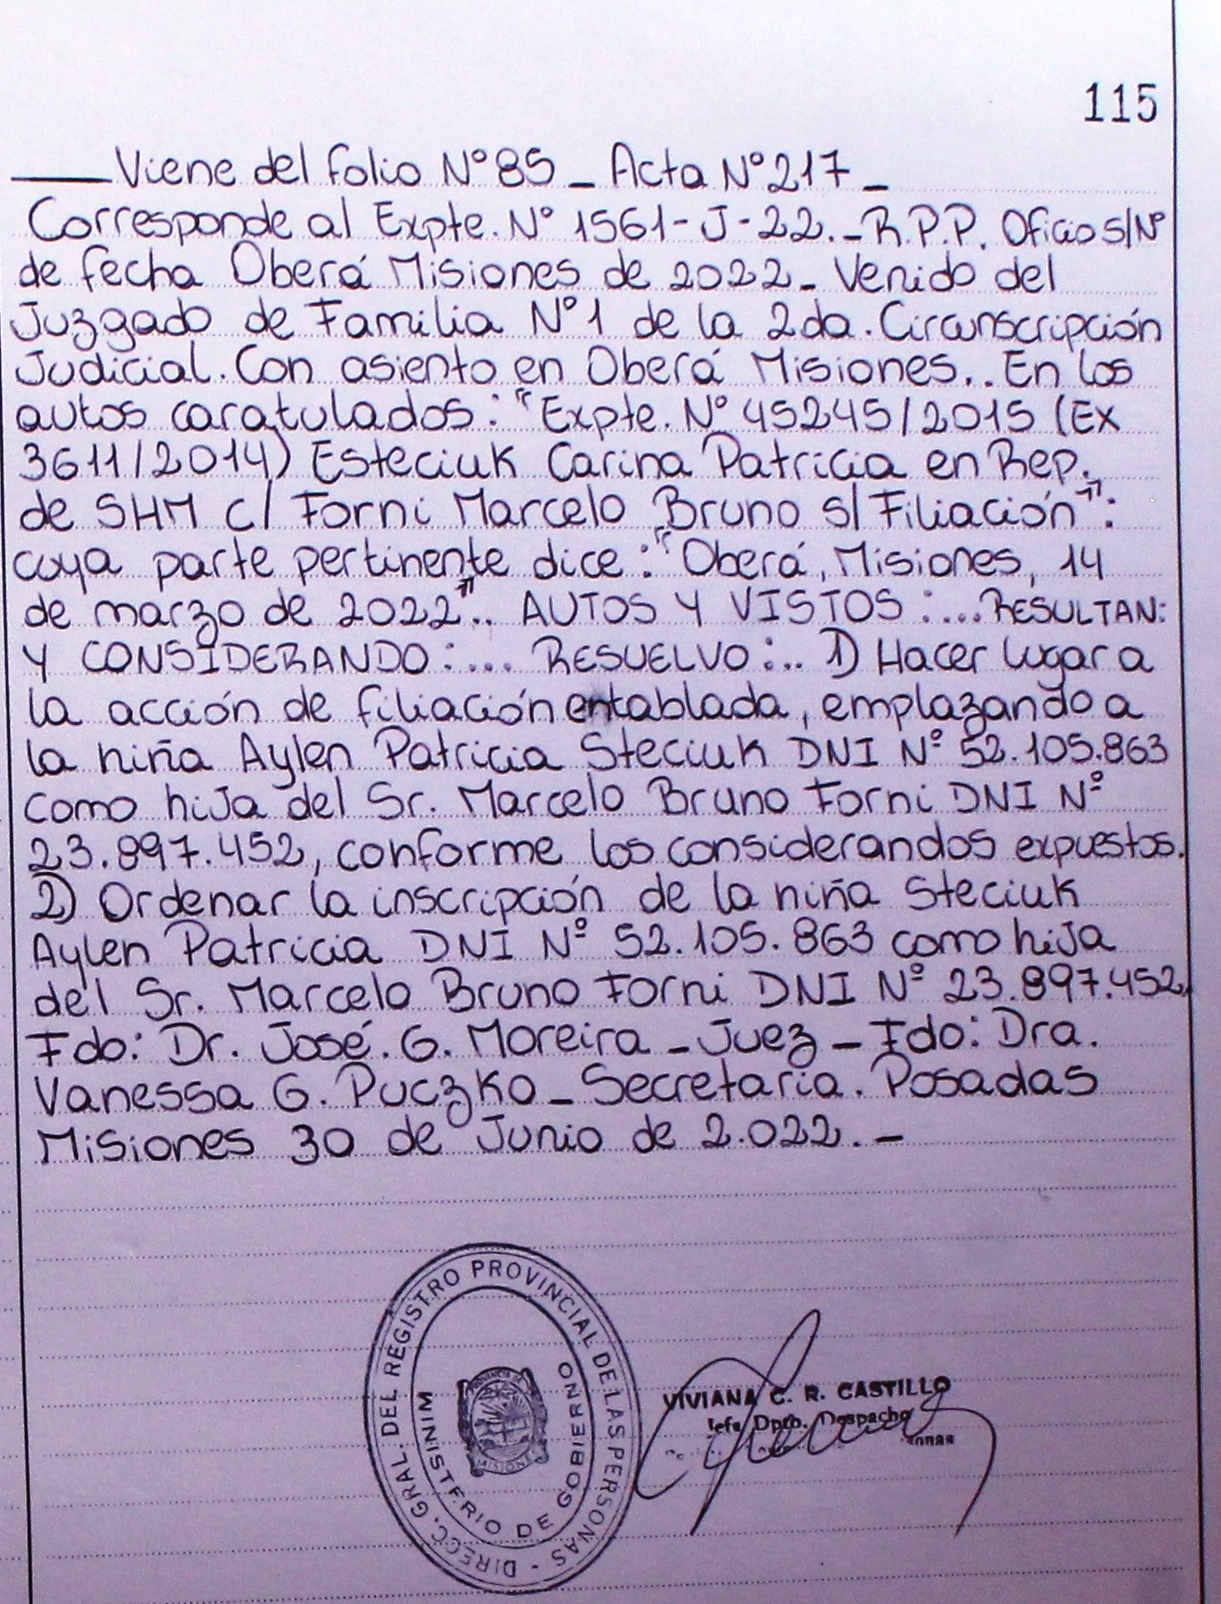 115
Viene del folio N°85 _ Acta N°217 _
Corresponde al Expte. N° 1561-J-22._R.P.P. Oficio s/N°
de fecha Oberá Misiones de 2022_ Venido del
Juzgado de Familia N°1 de la 2da. Circunscripción
Judicial. Con asiento en Oberá Misiones.. En los
autos caratulados: "Expte. N° 45245/2015 (EX
3611/2014) Esteciuk Carina Patricia en Rep.
de SHM c/ Forni Marcelo Bruno s/Filiación":
cuya parte pertinente dice: "Oberá, Misiones, 14
de marzo de 2022".. AUTOS Y VISTOS:... RESULTAN:
Y CONSIDERANDO:... RESUELVO:.. 1) Hacer lugar a
la acción de filiación entablada, emplazando a
la niña Aylen Patricia Steciuk DNI Nº 52.105.863
como hija del Sr. Marcelo Bruno Forni DNI Nº
23.897.452, conforme los considerandos expuestos.
2) Ordenar la inscripción de la niña Steciuk
Aylen Patricia DNI Nº 52.105.863 como hija
del Sr. Marcelo Bruno Forni DNI Nº 23.897.452,
Fdo: Dr. José. G. Moreira _ Juez _ Fdo: Dra.
Vanessa G. Puczko _ Secretaria. Posadas
Misiones 30 de Junio de 2.022. -
DIRECC. GRAL. DEL REGISTRO PROVINCIAL DE LAS PERSONAS -
MINISTERIO DE GOBIERNO
PROVINCIA DE
MISIONES
VIVIANA C. R. CASTILLO
Jefe Dpto. Despacho